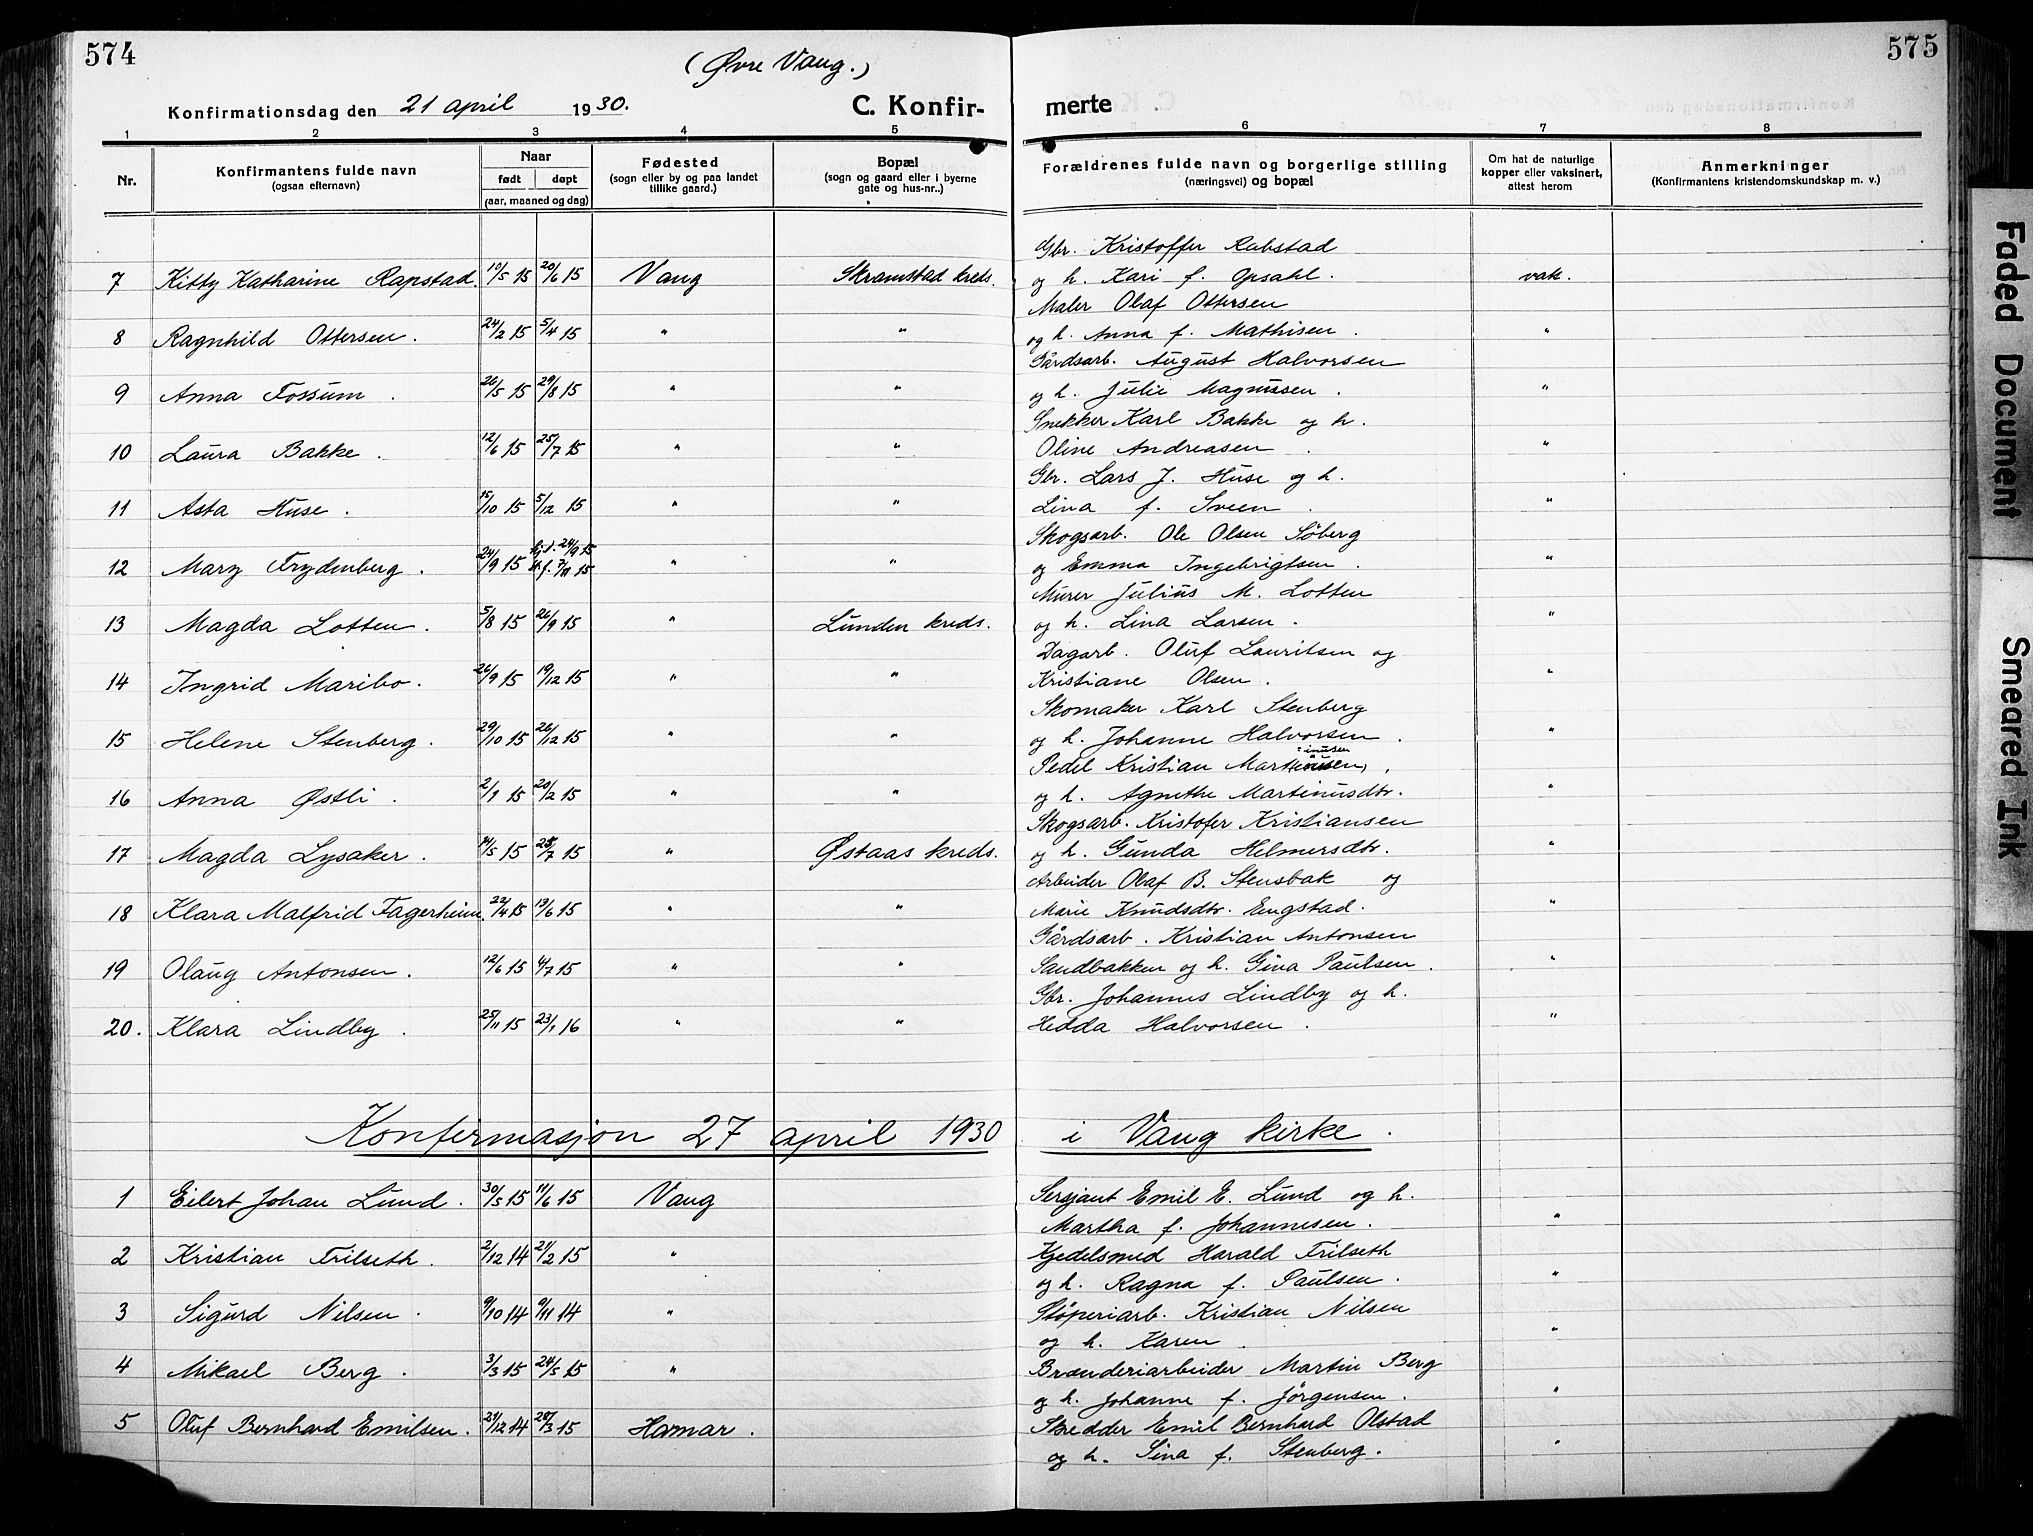 574
(Øvre Vang.)
575
Konfirmationsdag den 21 april 1930.
C. Konfir-
merte
1 2 3 4 5 6 7 8
Nr.
Konfirmantens fulde navn
(ogsaa efternavn)
Naar
født døpt
(aar, maaned og dag)
Fødested
(sogn eller by og paa landet
tillike gaard.)
Bopæl
(sogn og gaard eller i byerne
gate og hus-nr..)
Forældrenes fulde navn og borgerlige stilling
(næringsvei) og bopæl
Om hat de naturlige
kopper eller vaksinert,
attest herom
Anmerkninger
(Konfirmantens kristendomskundskap m. v.)
Gbr. Kristoffer Rabstad
7 Kitty Katharine Rapstad. 10/5 15 20/6 15 Vang Skramstad kreds. og h. Kari f. Opsahl. vak.
Maler Olaf Ottersen
8 Ragnhild Ottersen. 24/2 15 5/4 15 " " og h. Anna f. Mathisen. "
Gårdsarb. August Halvorsen
9 Anna Fossum. 26/5 15 29/8 15 " " og h. Julie Magnussen. "
Snekker Karl Bakke og h.
10 Laura Bakke. 12/6 15 25/7 15 " " Oline Andreasen. "
Gbr. Lars J. Huse og h.
11 Asta Huse. 15/10 15 5/12 15 " " Lina f. Sveen. "
Skogsarb. Ole Olsen Söberg
12 Mary Frydenberg. 24/9 15 hjd. 24/9 15 st.f. 7/11 15 " " og Emma Ingebrigtsen. "
Murer Julius M. Lotten
13 Magda Lotten. 5/8 15 26/9 15 " Lunden kreds. og h. Lina Larsen. "
Dagarb. Oluf Lauritsen og
14 Ingrid Maribo. 26/9 15 19/12 15 " " Kristiane Olsen. "
Skomaker Karl Stenberg
15 Helene Stenberg. 29/10 15 26/12 15 " " og h. Johanne Halvorsen. "
Pedel Kristian Martinusen.
16 Anna Østli. 2/1 15 20/2 15 " " og h. Agnethe Martinusdtr. "
Skogsarb. Kristofer Kristiansen
17 Magda Lysaker. 4/5 15 25/7 15 " Østaas kreds. og h. Gunda Helmersdtr. "
Arbeider Olaf B. Stensbak og
18 Klara Malfrid Fagerheim. 22/4 15 13/6 15 " " Marie Knudsdtr. Engstad. "
Gårdsarb. Kristian Antonsen
19 Olaug Antonsen. 12/6 15 4/7 15 " " Sandbakken og h. Gina Paulsen. "
Gbr. Johannes Lindby og h.
20. Klara Lindby. 25/11 15 23/1 16 " " Hedda Halvorsen. "
Konfirmasjon 27 april 1930 i Vang kirke.
1 Eilert Johan Lund. 30/5 15 11/6 15 Vang Sersjant Emil E. Lund og h.
Martha f. Johannesen. "
2 Kristian Frilseth. 2/12 14 21/2 15 " Kjedelsmed Harald Frilseth
og h. Ragna f. Paulsen. "
3 Sigurd Nilsen. 9/10 14 9/11 14 " Stöperiarb. Kristian Nilsen
og h. Karen. "
4 Mikael Berg. 3/3 15 24/5 15 " Brænderiarbeider Martin Berg
og h. Johanne f. Jörgensen. "
5 Oluf Bernhard Emilsen. 21/12 14 28/3 15 Hamar. Skredder Emil Bernhard Olstad
og h. Sina f. Stenberg. "
Faded Document
Smeared Ink